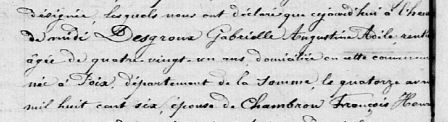 désignée, lesquels nous ont déclaré que cejourd'hui à l'heure
de midi Desgroux Gabrielle Augustine
âgée de quatre-vingt-un ans, domiciliée en cette commune
née à Foix, département de la Somme, le quatorze avr
mil huit cent six, épouse de Chambron François Hono